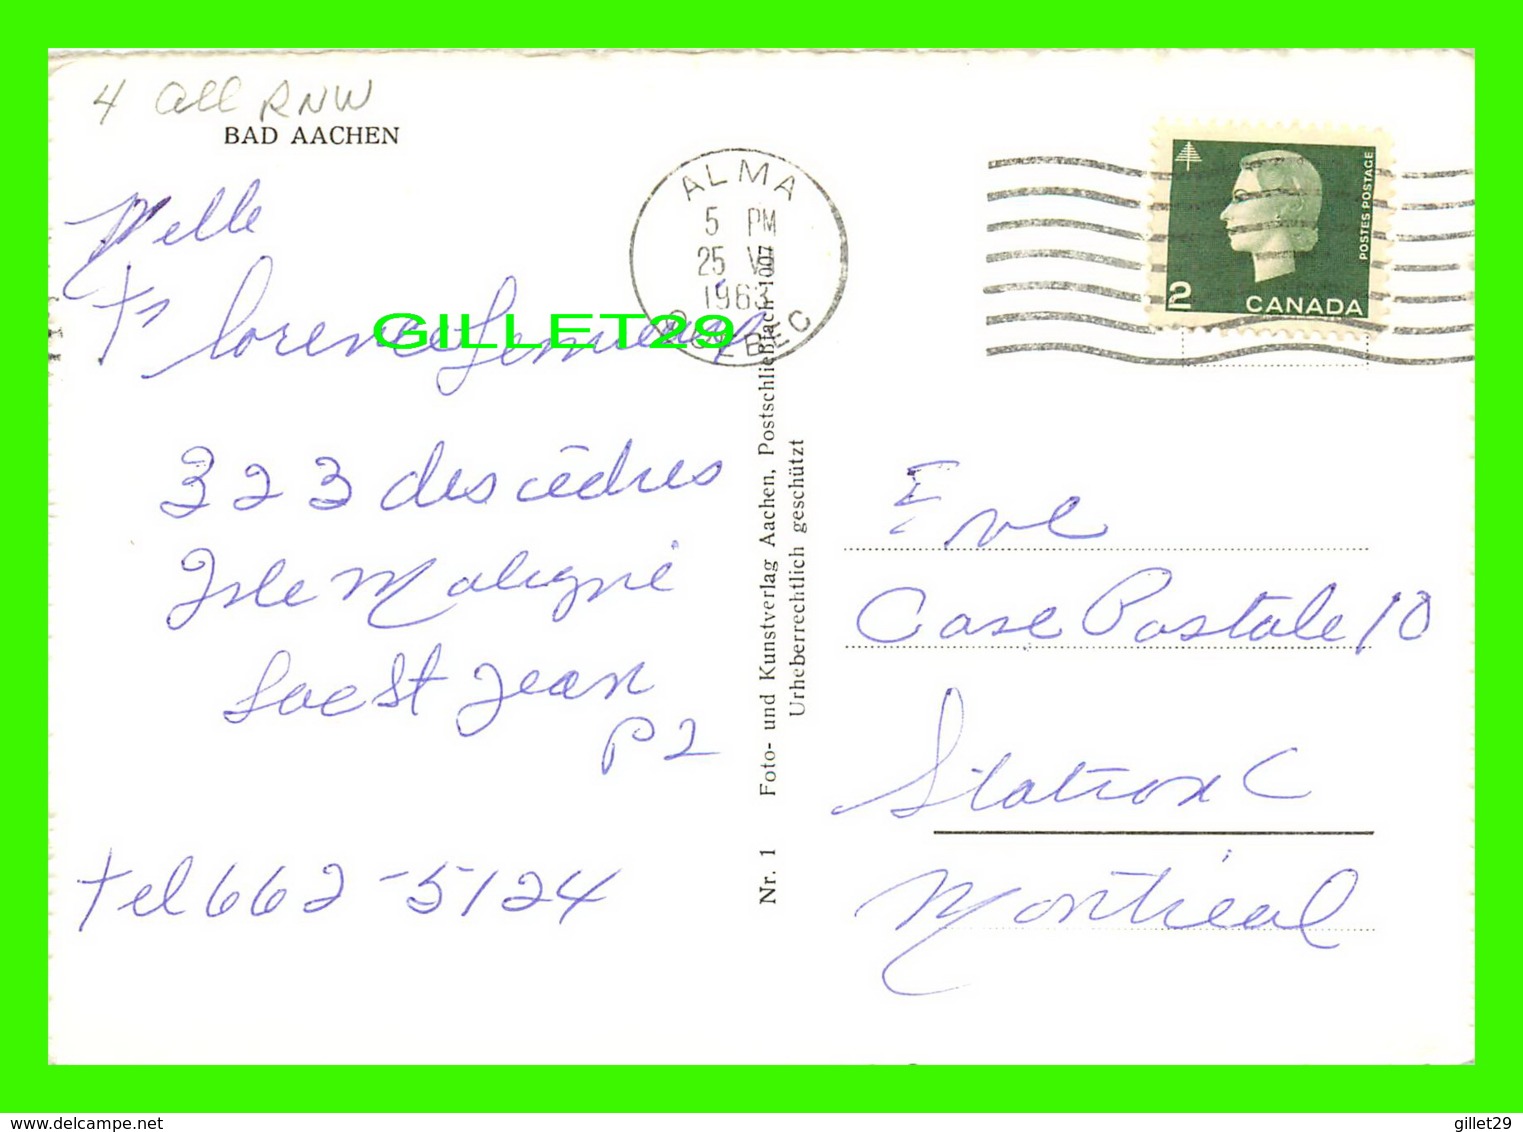 4 all RNW
BAD AACHEN
Melle
Florence
GILLET29
323 des cèdres
Isle Maligne
Lac St Jean
P2
Tel 662-5124
ALMA
5 PM
25 VI
1963
QUEBEC
Nr. 1 Foto- und Kunstverlag Aachen, Postschließfach 1007
Urheberrechtlich geschützt
POSTES POSTAGE
2
CANADA
Eve
Case Postale 10
Station C
Montréal
gillet29